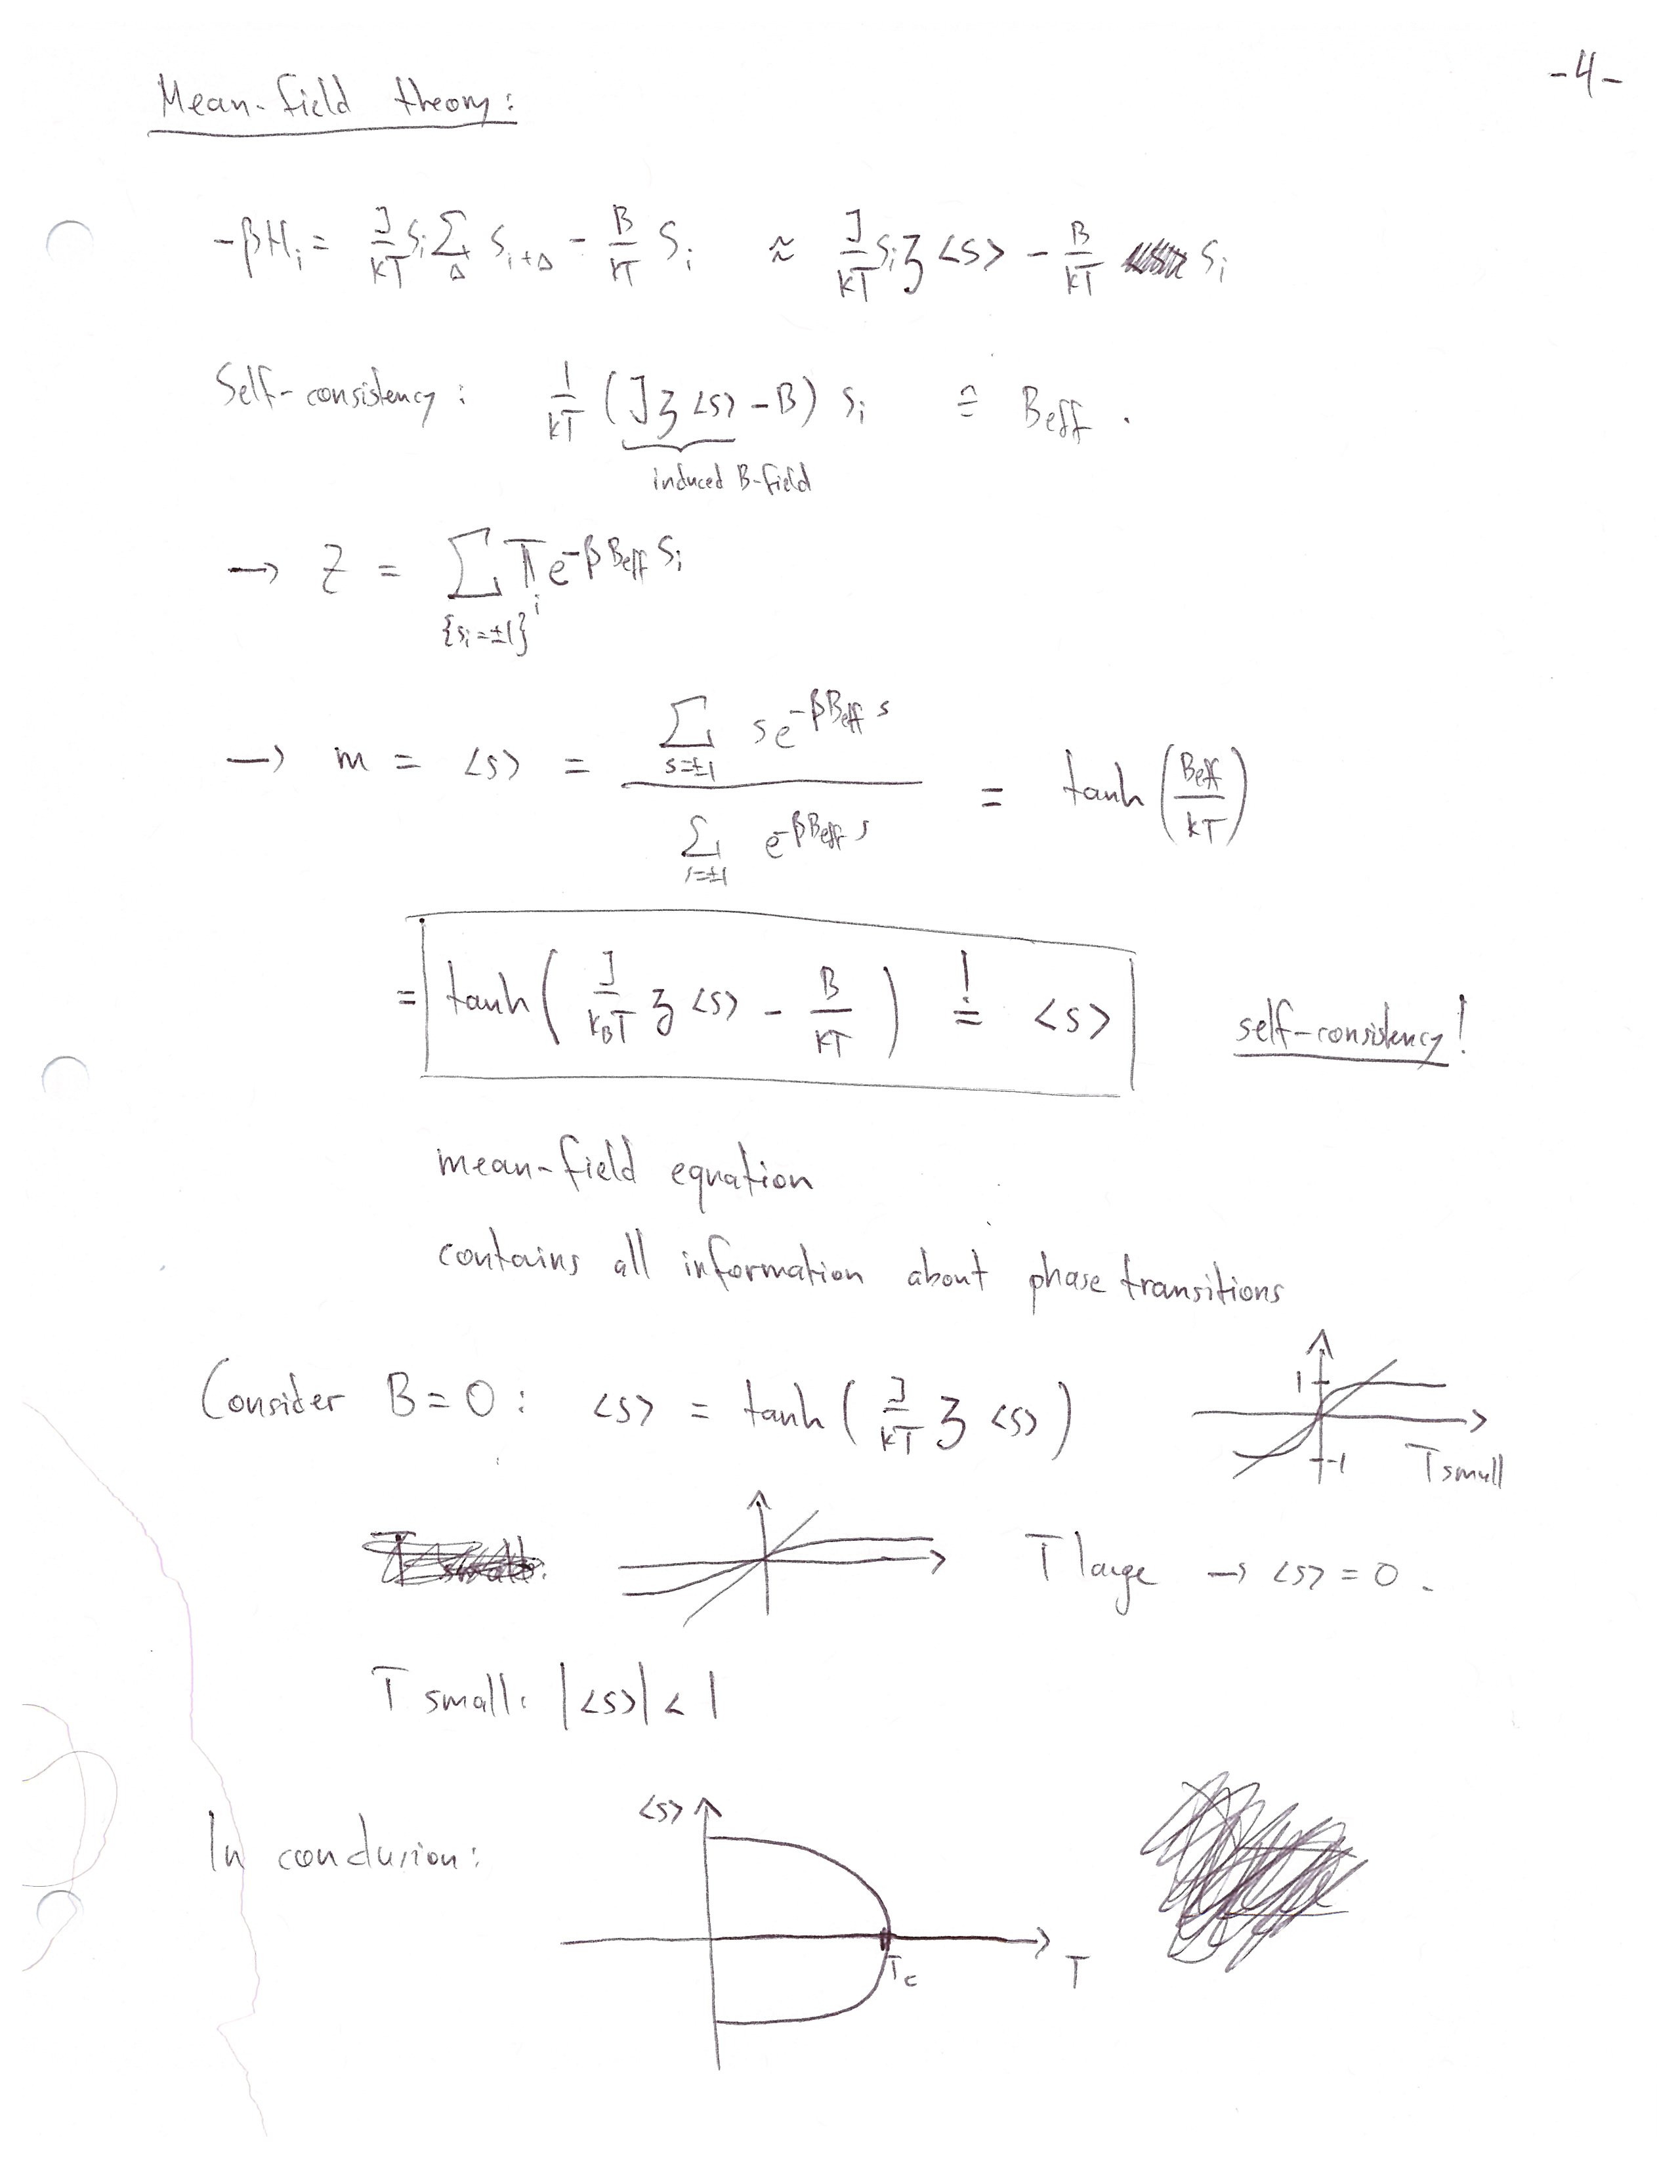 -4-
Mean-field theory:
-βH_i = J/kT S_i Σ_Δ S_{i+Δ} - B/kT S_i ≈ J/kT S_i z <S> - B/kT S_i
Self-consistency: 1/kT (J z <S> - B) S_i ≙ Beff .
induced B-field
→ Z = Σ_{{s_i=±1}} Π_i e^{-β Beff S_i}
→ m = <S> = Σ_{s=±1} s e^{-βBeff s} / Σ_{s=±1} e^{-βBeff s} = tanh (Beff/kT)
= tanh ( J/k_BT z <S> - B/kT ) != <S> self-consistency!
mean-field equation
contains all information about phase transitions
Consider B=0: <S> = tanh ( J/kT z <S> )
1
-1
T small
T large → <S> = 0 .
T small: |<S>| < 1
In conclusion:
<S>
T_c
T